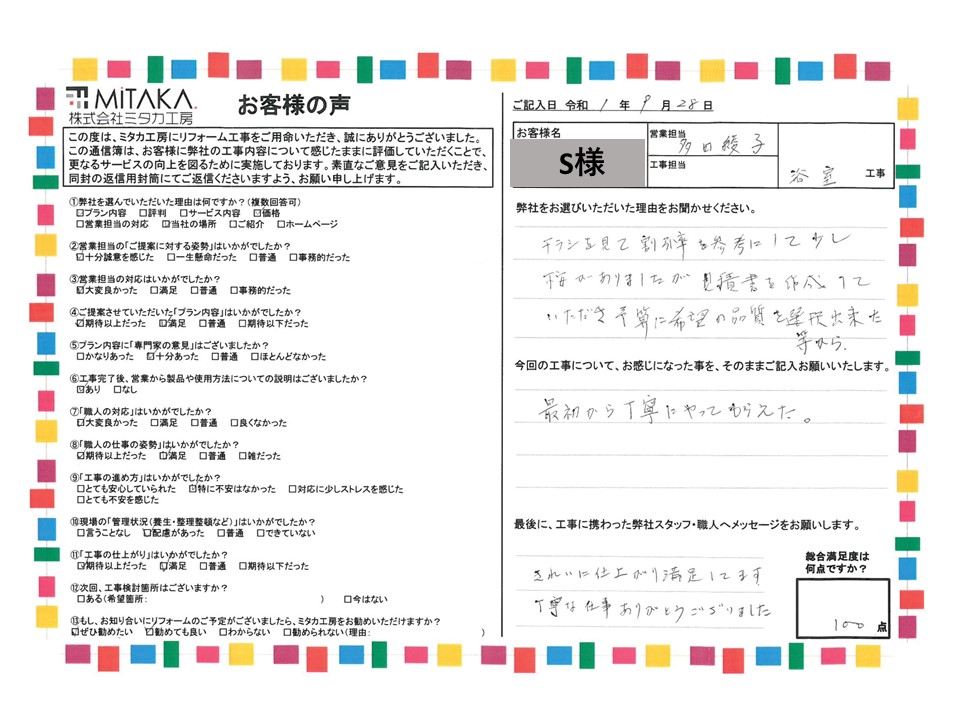 MiTAKA
株式会社ミタカ工房
お客様の声
この度は、ミタカ工房にリフォーム工事をご用命いただき、誠にありがとうございました。
この通信簿は、お客様に弊社の工事内容について感じたままに評価していただくことで、
更なるサービスの向上を図るために実施しております。素直なご意見をご記入いただき、
同封の返信用封筒にてご返信くださいますよう、お願い申し上げます。
①弊社を選んでいただいた理由は何ですか?(複数回答可)
☑プラン内容 □評判 □サービス内容 ☑価格
□営業担当の対応 ☑当社の場所 □ご紹介 □ホームページ
②営業担当の「ご提案に対する姿勢」はいかがでしたか?
☑十分誠意を感じた □一生懸命だった □普通 □事務的だった
③営業担当の対応はいかがでしたか?
☑大変良かった □満足 □普通 □事務的だった
④ご提案させていただいた「プラン内容」はいかがでしたか?
☑期待以上だった ☑満足 □普通 □期待以下だった
⑤プラン内容に「専門家の意見」はございましたか?
□かなりあった ☑十分あった □普通 □ほとんどなかった
⑥工事完了後、営業から製品や使用方法についての説明はございましたか?
☑あり □なし
⑦「職人の対応」はいかがでしたか?
☑大変良かった □満足 □普通 □良くなかった
⑧「職人の仕事の姿勢」はいかがでしたか?
☑期待以上だった ☑満足 □普通 □雑だった
⑨「工事の進め方」はいかがでしたか?
□とても安心していられた ☑特に不安はなかった □対応に少しストレスを感じた
□とても不安を感じた
⑩現場の「管理状況(養生・整理整頓など)」はいかがでしたか?
□言うことなし ☑配慮があった □普通 □できていない
⑪「工事の仕上がり」はいかがでしたか?
☑期待以上だった ☑満足 □普通 □期待以下だった
⑫次回、工事検討箇所はございますか?
□ある(希望箇所: ) □今はない
⑬もし、お知り合いにリフォームのご予定がございましたら、ミタカ工房をお勧めいただけますか?
☑ぜひ勧めたい ☑勧めても良い □わからない □勧められない(理由: )
ご記入日 令和 1 年 9 月 28 日
お客様名
S様
営業担当
多田綾子
工事担当
浴室 工事
弊社をお選びいただいた理由をお聞かせください。
チラシを見て割引率を参考にして少し
ありましたが見積書を作成して
いただき予算に希望の品質を選択出来た
等から.
今回の工事について、お感じになった事を、そのままご記入お願いいたします。
最初から丁寧にやってもらえた。
最後に、工事に携わった弊社スタッフ・職人へメッセージをお願いします。
きれいに仕上がり満足してます
丁寧な仕事ありがとうございました
総合満足度は
何点ですか?
100 点